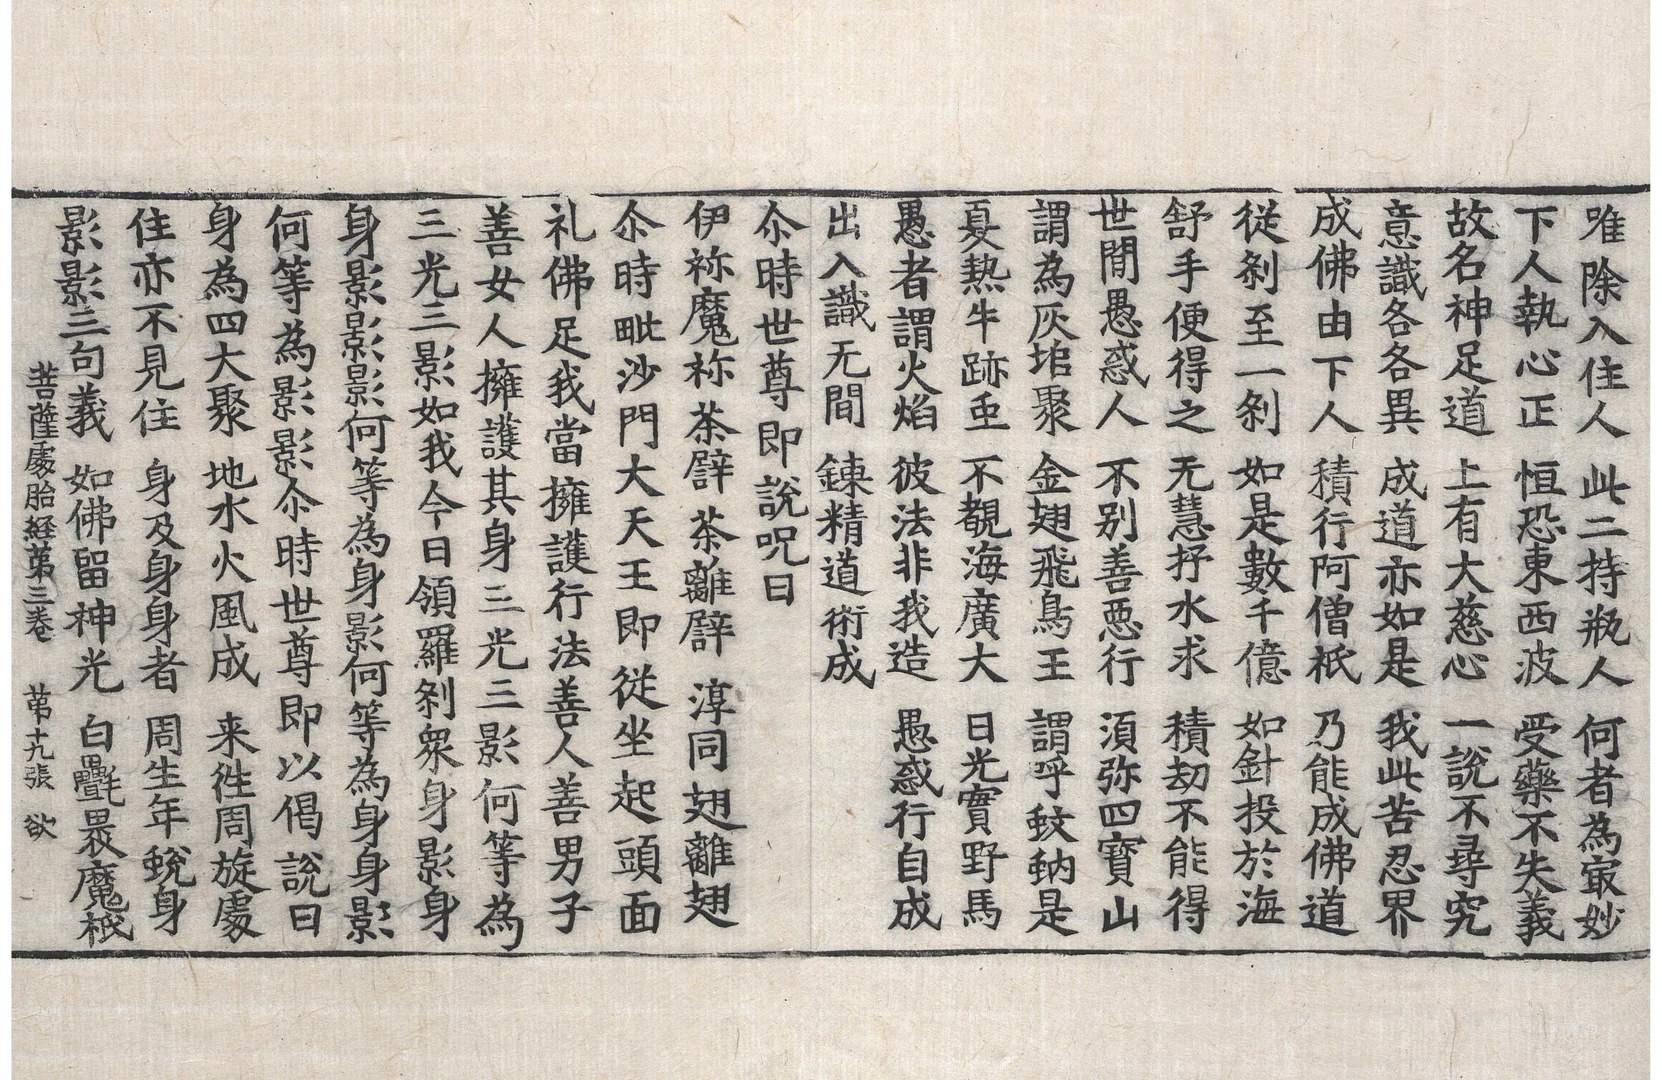 唯除入住人　此二持瓶人　何者為㝡妙
下人執心正　恒恐東西波　受藥不失義
故名神足道　上有大慈心　一說不尋究
意識各各異　成道亦如是　我此苦忍界
成佛由下人　積行阿僧祇　乃能成佛道
從剎至一剎　如是數千億　如針投於海
舒手便得之　无慧抒水求　積劫不能得
世間愚惑人　不别善悪行　須弥四寶山
謂為灰堆聚　金翅飛鳥王　謂呼蚊蚋是
夏熱牛跡𠄶　不覩海廣大　日光實野馬
愚者謂火焰　彼法非我造　愚惑行自成
出入識无間　鍊精道術成
尒時世尊即說呪曰
伊祢魔祢　茶辟　茶離辟　淳同翅離翅
尒時毗沙門大天王即從坐起頭面
礼佛足我當擁護行法善人善男子
善女人擁護其身三光三影何等為
三光三影如我今日領羅剎衆身影身
身影影影何等為身影何等為身身影
何等為影影尒時世尊即以偈說曰
身為四大聚　地水火風成　来徃周旋處
住亦不見住　身及身身者　周生年蛻身
影影三句義　如佛留神光　白㲲裹魔祇
菩薩處胎経苐三卷　苐十九張　欲